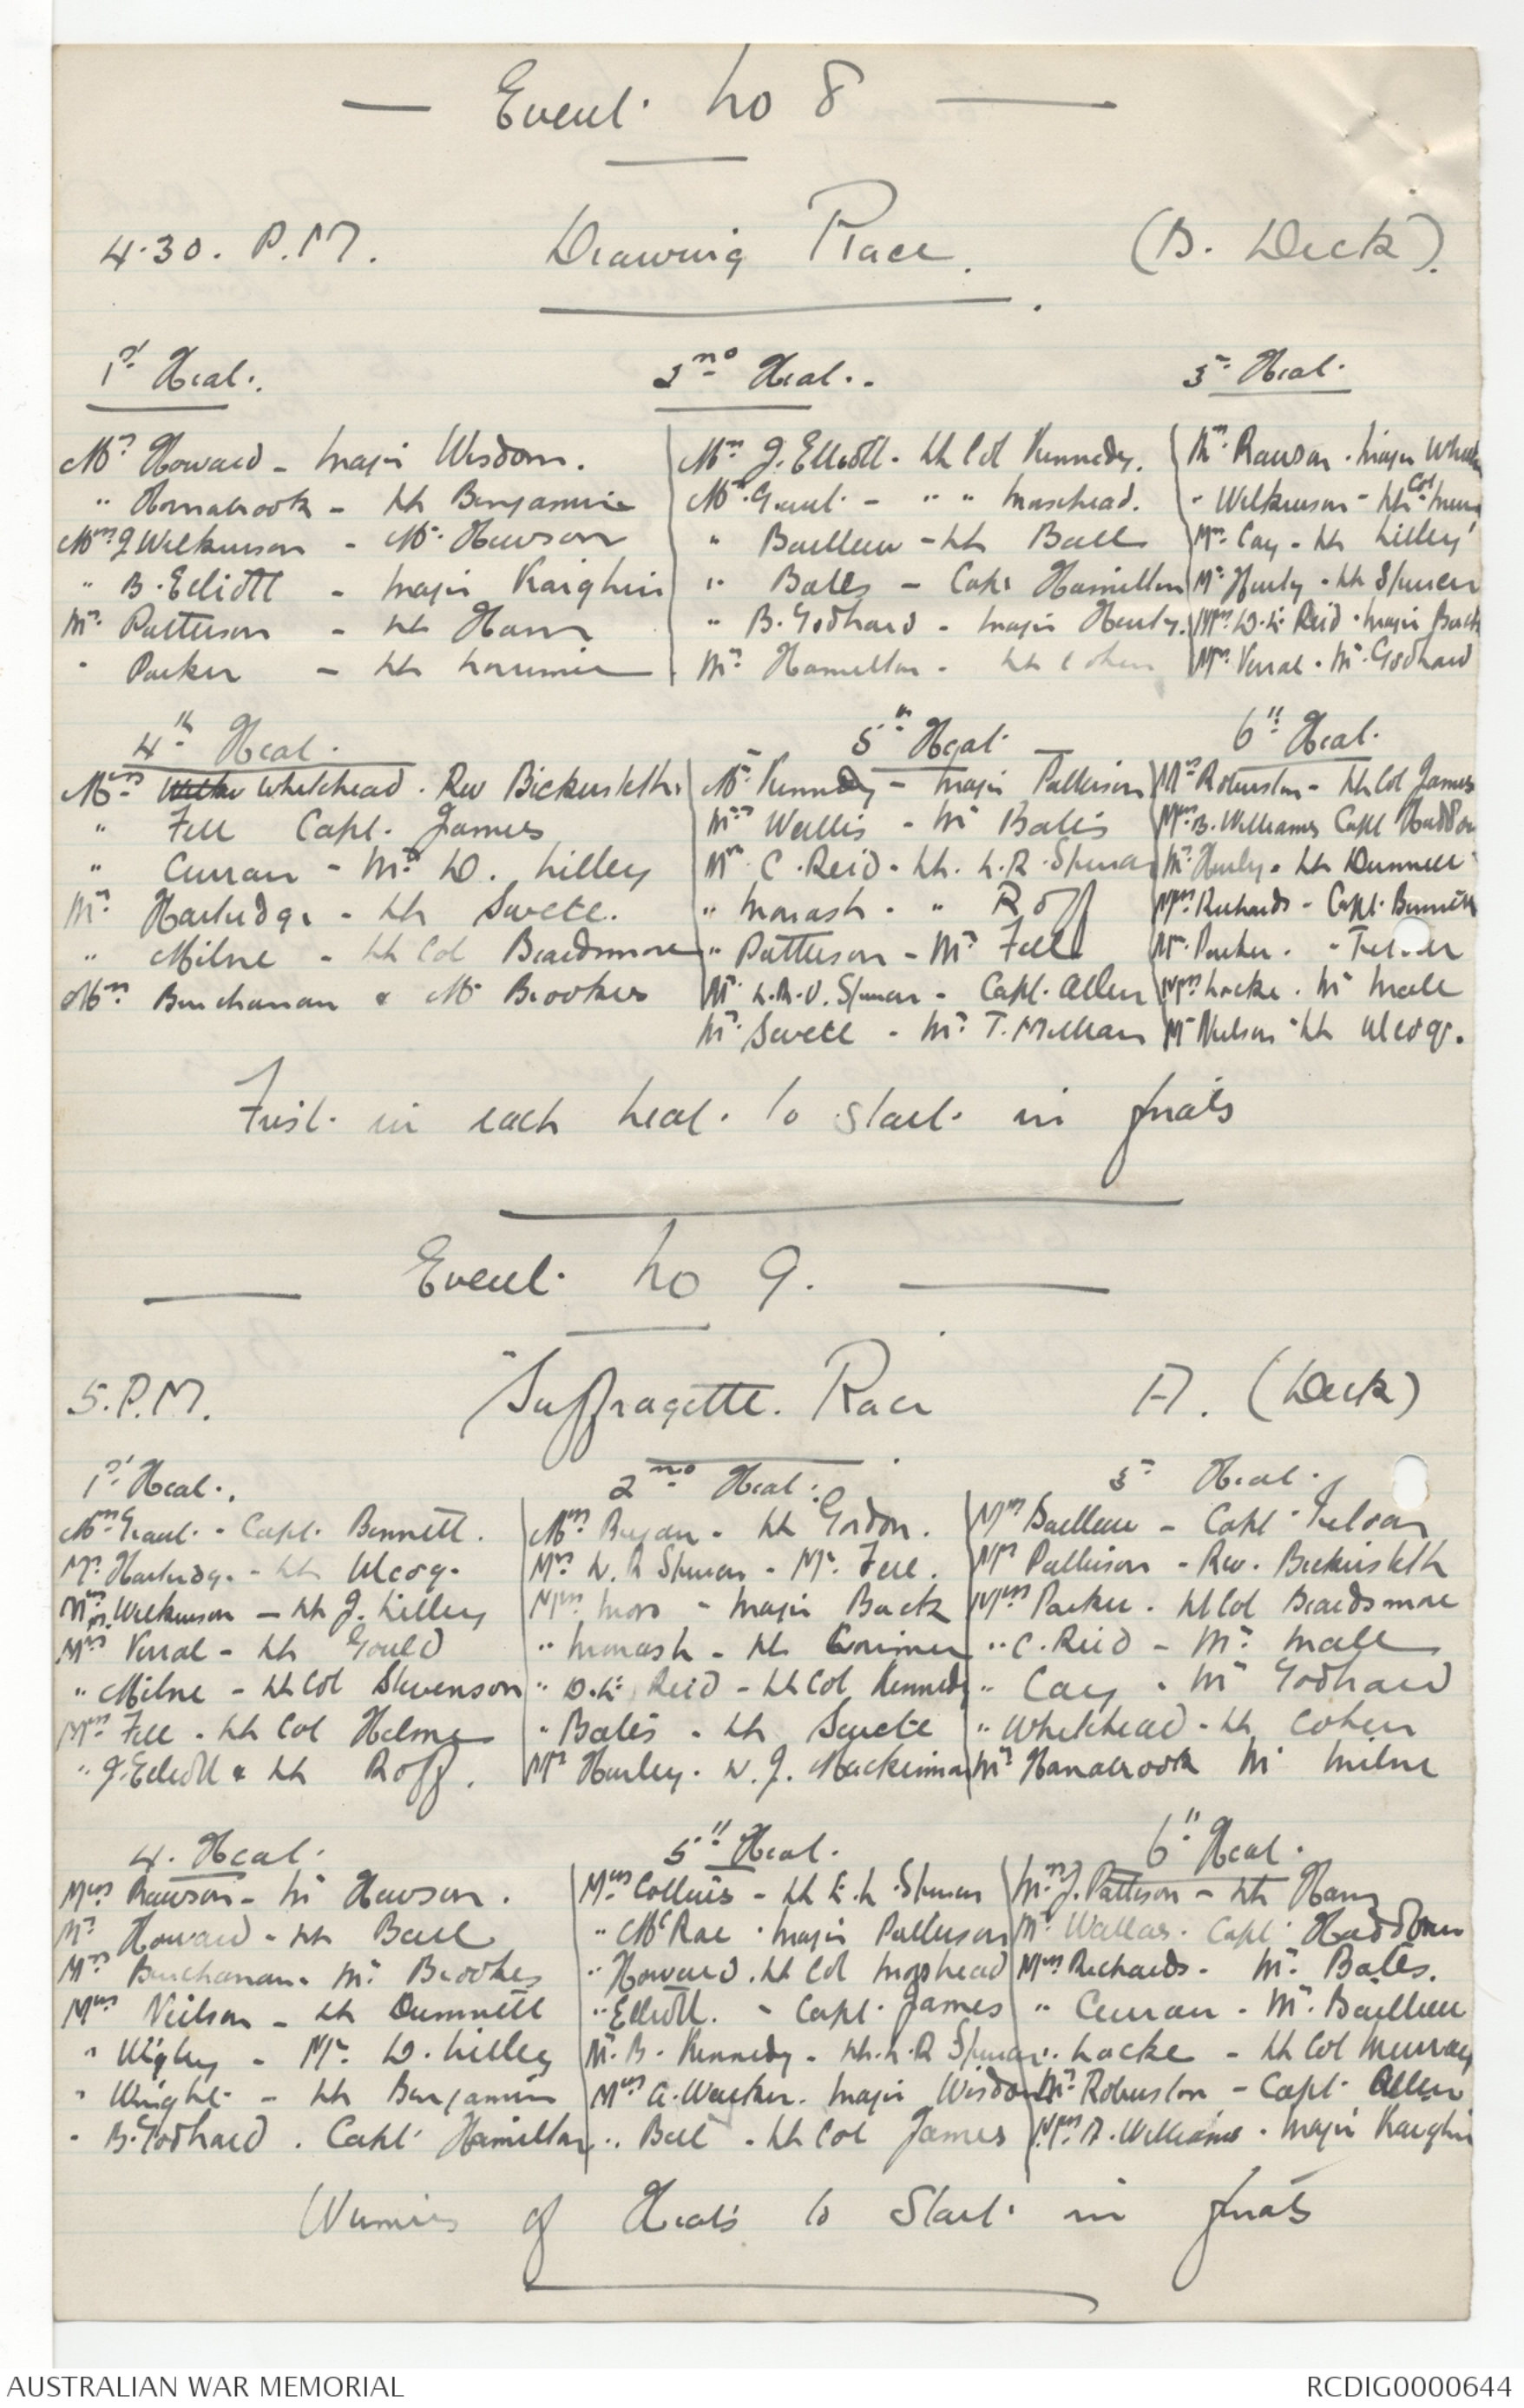 — Event. No 8 —
4.30. P.M. Drawing Race. (B. Deck).
1st Heat.
Mrs Howard - Major Wisdom.
" Hornabrook - Lt Benjamin
Miss J Wilkinson - Mr. Hewson
" B. Elliott - Major Kaighin
Mrs Patterson - Lt Ham
" Parker - Lt Lorimer
2nd Heat.
Miss J. Elliott - Lt Col Kennedy.
Mrs. Gaul. - " " Morshead.
" Baillieu - Lt Ball
" Bates - Capt Hamilton
" B. Godhard - Major Hurley.
Mrs Hamilton - Lt Cohen
3rd Heat.
Mrs. Rawson. Major
" Wilkinson - Lt Col
Mrs. Cay - Lt Lilley
Mrs Hurly - Lt Spencer
Miss D. L. Reid. Major Back
Miss Verral. Mr. Godhard
4th Heat.
Miss Whitehead. Rev Bickersteth.
" Fell Capt. James
" Curran - Mr. D. Lilley
Mrs Hartridge - Lt Swete.
" Milne - Lt Col Beardsmore
Miss Buchanan & Mr Brookes
5th Heat. —
Mrs. Kennedy - Major Patterson
Mrs Wallis - Mr Bates
Mrs C. Reid - Lt. L. R. Spencer
" Monash. " Roff
" Patterson - Mr Fell
Mrs L.R.V. Spencer - Capt. Allen
Mrs. Swete - Mr. T. Millear
6th Heat.
Mrs Robertson - Lt Col James
Miss B. Williams Capt Haddon
Mrs. Hurly - Lt Dunnett
Miss Richards - Capt. Bennett
Mrs Parker. "
Miss Locke. Mr Male
Mrs Neilson - Lt
First. in each heat. to start. in finals
— Event. No 9. —
5. P.M. Suffragette. Race A. (Deck)
1st Heat.
Miss Gaul. - Capt. Bennett.
Mrs. Hartridge. - Lt
Miss Wilkinson - Lt J. Lilley
Miss Verral - Lt Gould
" Milne - Lt Col Stevenson
Miss Fell. Lt Col Helme
" J. Elliott & Lt Roff.
2nd Heat.
Miss Bryan. Lt Gordon.
Mrs L. R Spencer - Mr. Fell.
Miss Moro - Major Back
" Monash - Lt Lorimer
" D. L. Reid - Lt Col Kennedy
" Bates. Lt Swete
Mrs Hurley. W. J. Mackinnon
3rd Heat.
Miss Baillieu - Capt
Mrs Patterson - Rev. Bickersteth
Miss Parker. Lt Col Beardsmore
" C. Reid - Mr. Male
" Cay. Mr Godhard
" Whitehead. Lt Cohen
Mrs Hornabrook Mr Milne
4. Heat.
Miss Rawson - Mr Hewson.
Mrs Howard - Lt Ball
Mrs Buchanan. Mr. Brookes
Miss Neilson - Lt Dunnett
" Wigley - Mr. D. Lilley
" Wright - Lt Benjamin
" B. Godhard. Capt Hamilton
5th Heat.
Miss Collins - Lt E. L. Spencer
" McRae. Major Patterson
" Howard. Lt Col Morshead
" Elliott. - Capt. James
Mrs. B. Kennedy - Lt. L. R Spencer
Miss A. Walker. Major Wisdom
" Ball - Lt Col James
6th Heat.
Mrs. J. Patterson - Lt Ham
Mrs Wallas. Capt. Haddon
Miss Richards - Mr. Bates.
" Curran. Mr. Baillieu
" Locke - Lt Col Murray
Mrs Robertson - Capt. Allen
Miss A. Williams. Major Kaighin
Winners of Heats to Start. in finals
AUSTRALIAN WAR MEMORIAL
RCDIG0000644